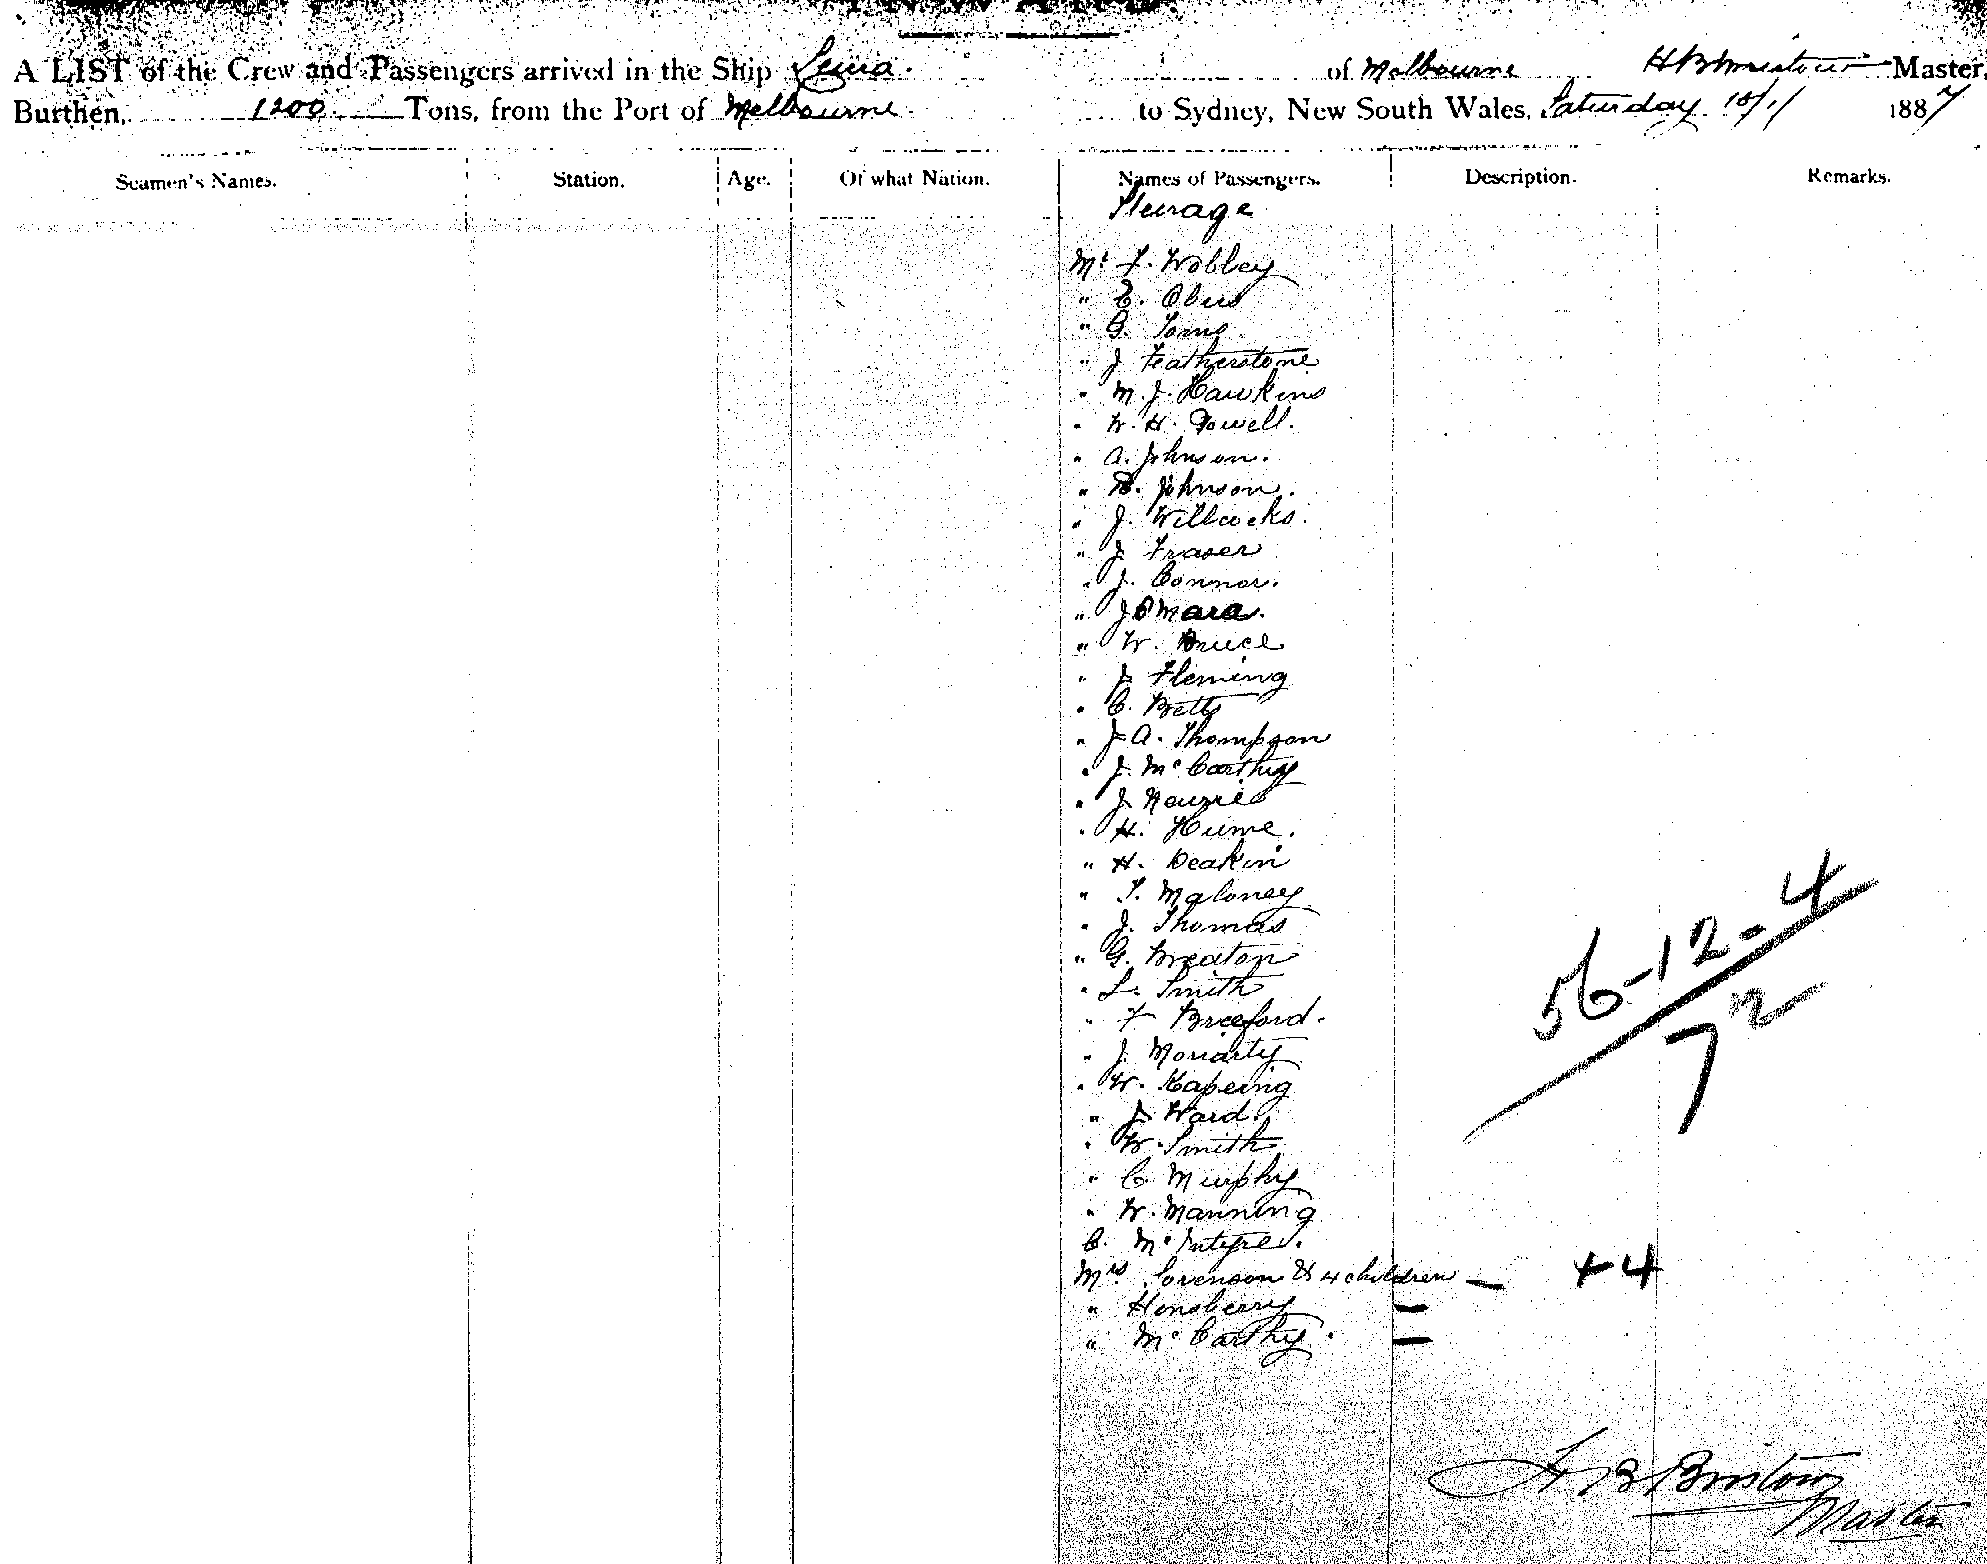 A LIST of the Crew and Passengers arrived in the Ship of Melbourne Master,
Burthen, 1200 Tons, from the Port of Melbourne to Sydney, New South Wales, Saturday 1887
Seamen's Names. Station. Age. Of what Nation. Names of Passengers. Description. Remarks.
Steerage
Mr F. Wobley
" E.
" G.
" J Featherstone
" M. J. Hawkins
" W. H. Powell.
" A. Johnson.
" Johnson.
" J. Willcocks.
" J Fraser
" J. Connor.
" J O'Mara.
" W. Bruce
" J Fleming
" C. Betts
" J A. Thompson
" J. McCarthy
" J
" H. Hume.
" H. Deakin
" T. Maloney
" J. Thomas
" G. Breaton
" L. Smith
" F Breeford.
" J. Moriarty
" W. Kapeing
" J Ward.
" W. Smith
" C Murphy
" W. Manning
C. McIntyre.
Mrs Sorenson & 4 children — +4
" Hansberry —
" McCarthy. —
56-12-4
72
H B Bristow
Master